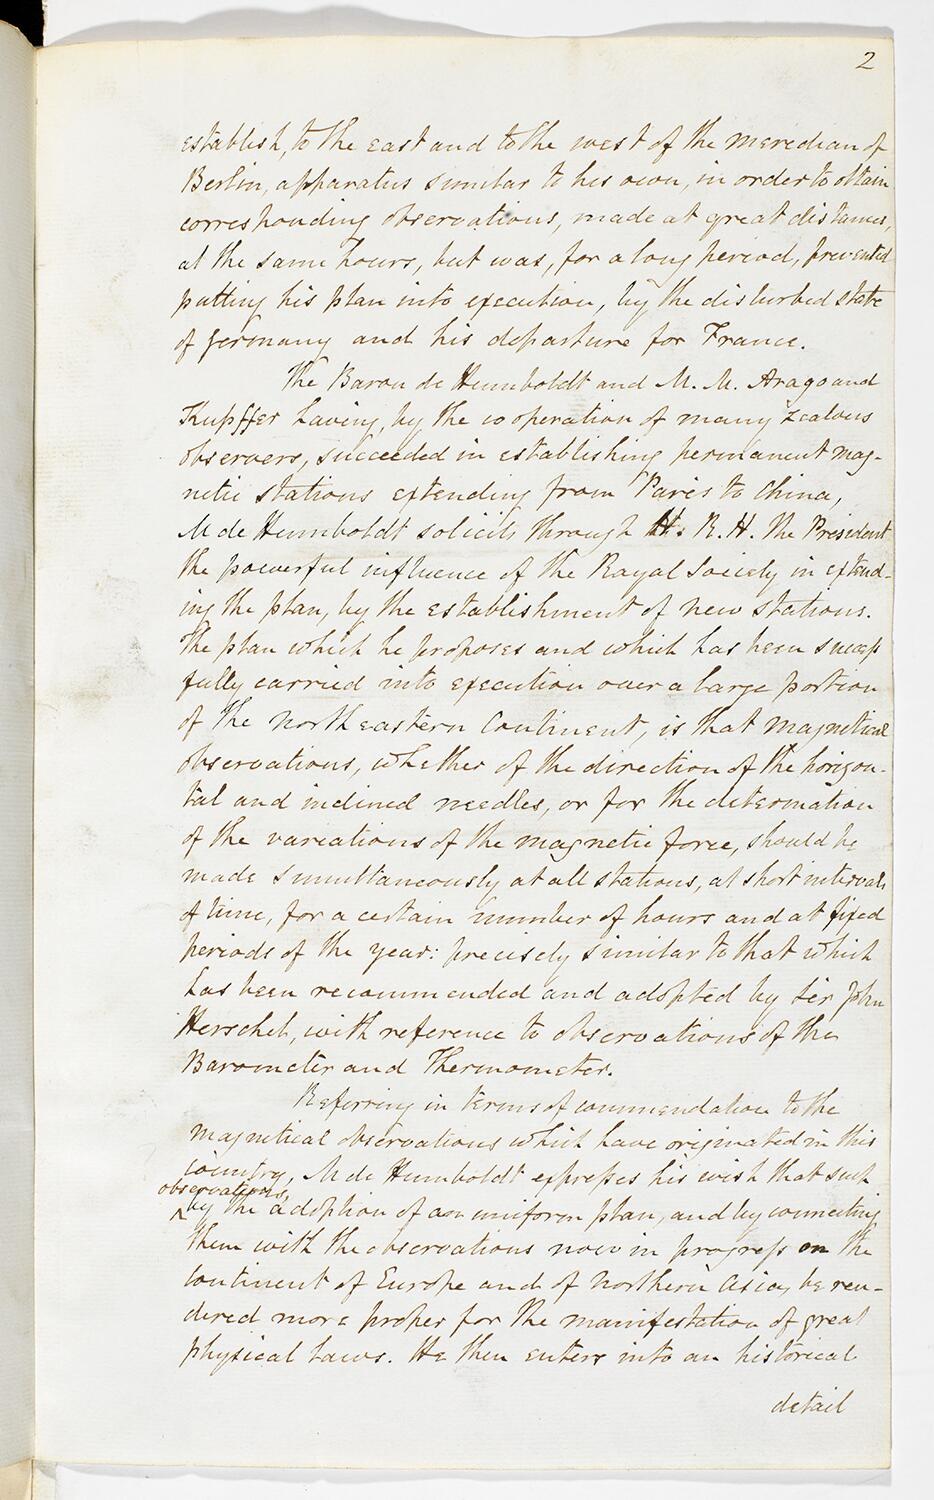 2
establish, to the east and to the west of the meridian of
Berlin, apparatus similar to his own, in order to obtain
corresponding observations, made at great distances,
at the same hours, but was, for a long period, prevented
putting his plan into execution, by the disturbed state
of Germany and his departure for France.
The Baron de Humboldt and M. M. Arago and
Kupffer having, by the cooperation of many zealous
observers, succeeded in establishing permanent mag-
netic stations extending from Paris to China,
M de Humboldt solicits through H. R. H. the President
the powerful influence of the Royal Society in extend-
ing the plan, by the establishment of new stations.
The plan which he proposes and which has been success
fully carried into execution over a large portion
of the north eastern Continent, is that magnetical
observations, whether of the direction of the horizon-
tal and inclined needles, or for the determation
of the variations of the magnetic force, should be
made simultaneously at all stations, at short intervals
of time, for a certain number of hours and at fixed
periods of the year: precisely similar to that which
has been recommended and adopted by Sir John
Herschel, with reference to observations of the
Barometer and Thermometer.
Referring in terms of commendation to the
magnetical observations which have originated in this
country, M de Humboldt expresses his wish that such
observations,
by the adoption of an uniform plan, and by connecting
them with the observations now in progress on the
continent of Europe and of Northern Asia, be ren-
dered more proper for the manifestation of great
physical laws. He then enters into an historical
detail